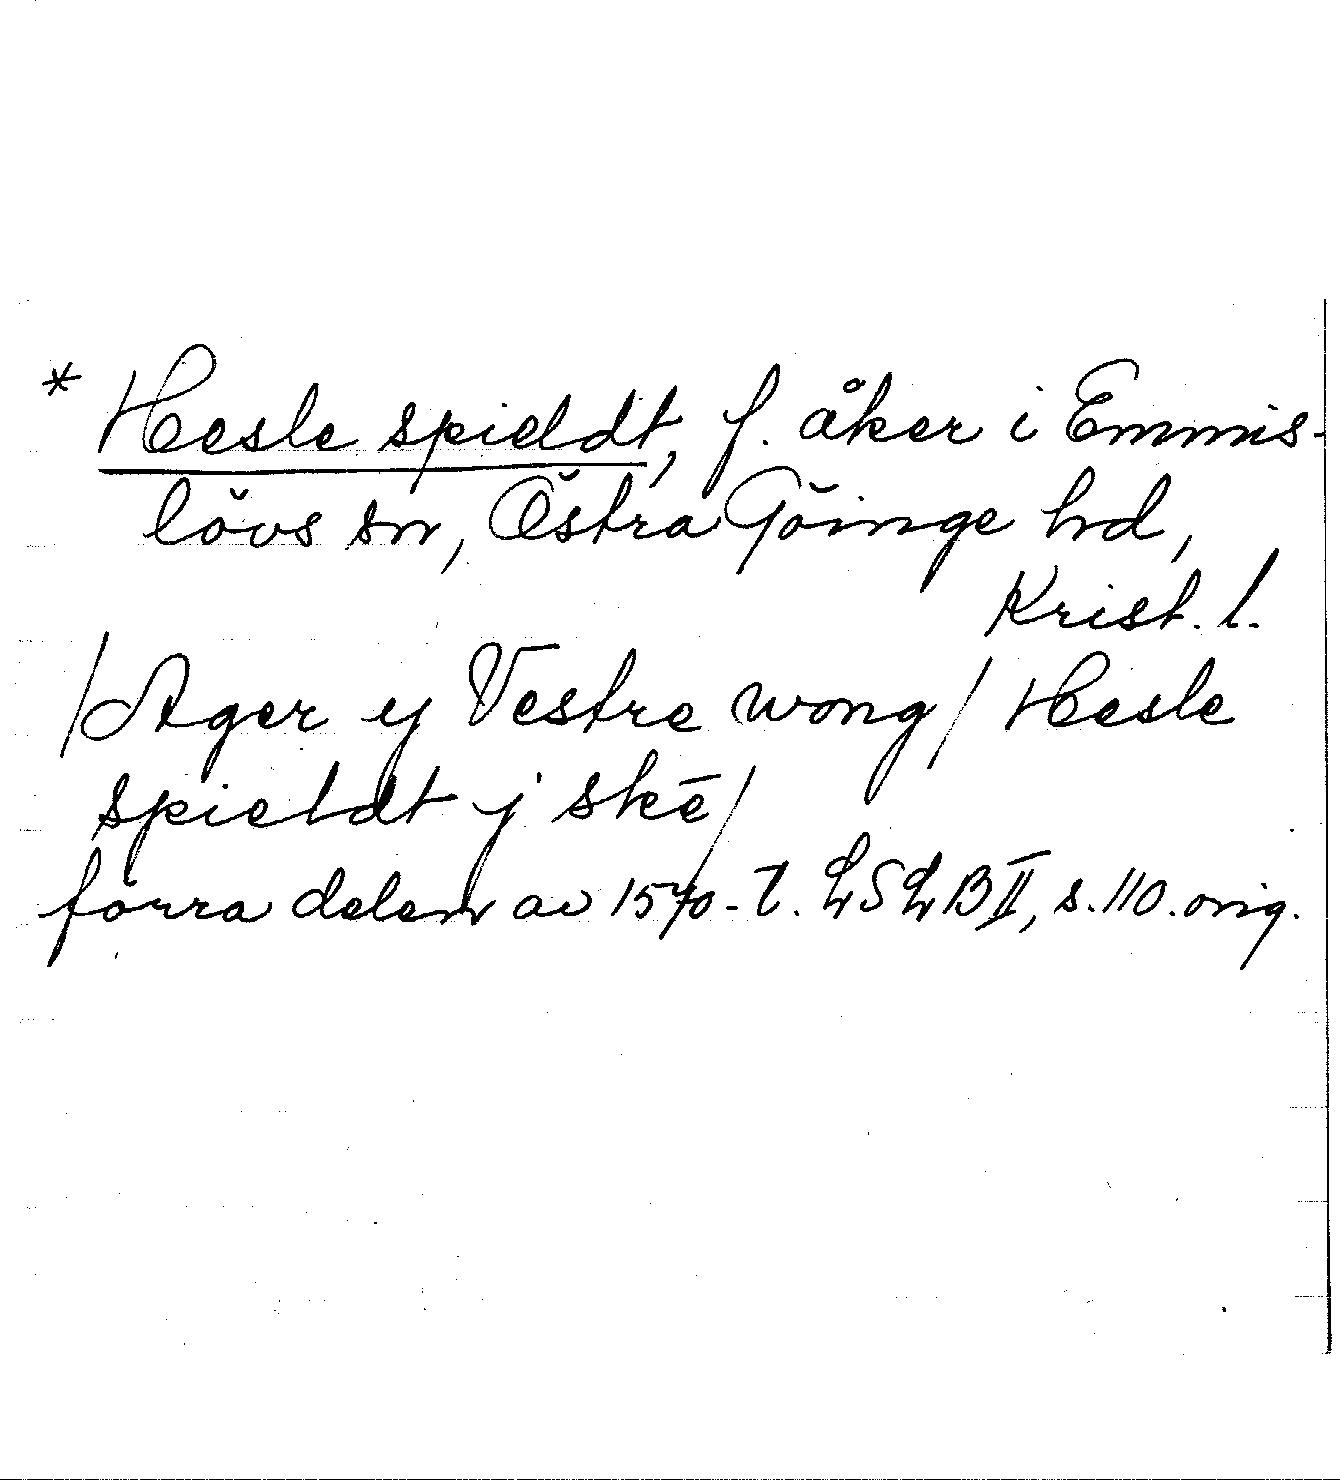 * Hesle spieldt, f. åker i Emmis-
lövs sn, Östra Göinge hd,
Krist. l.
/Ager y Vestre wong/ Hesle
spieldt j skē/
förra delen av 1570-t. LSLB II, s. 110. orig.